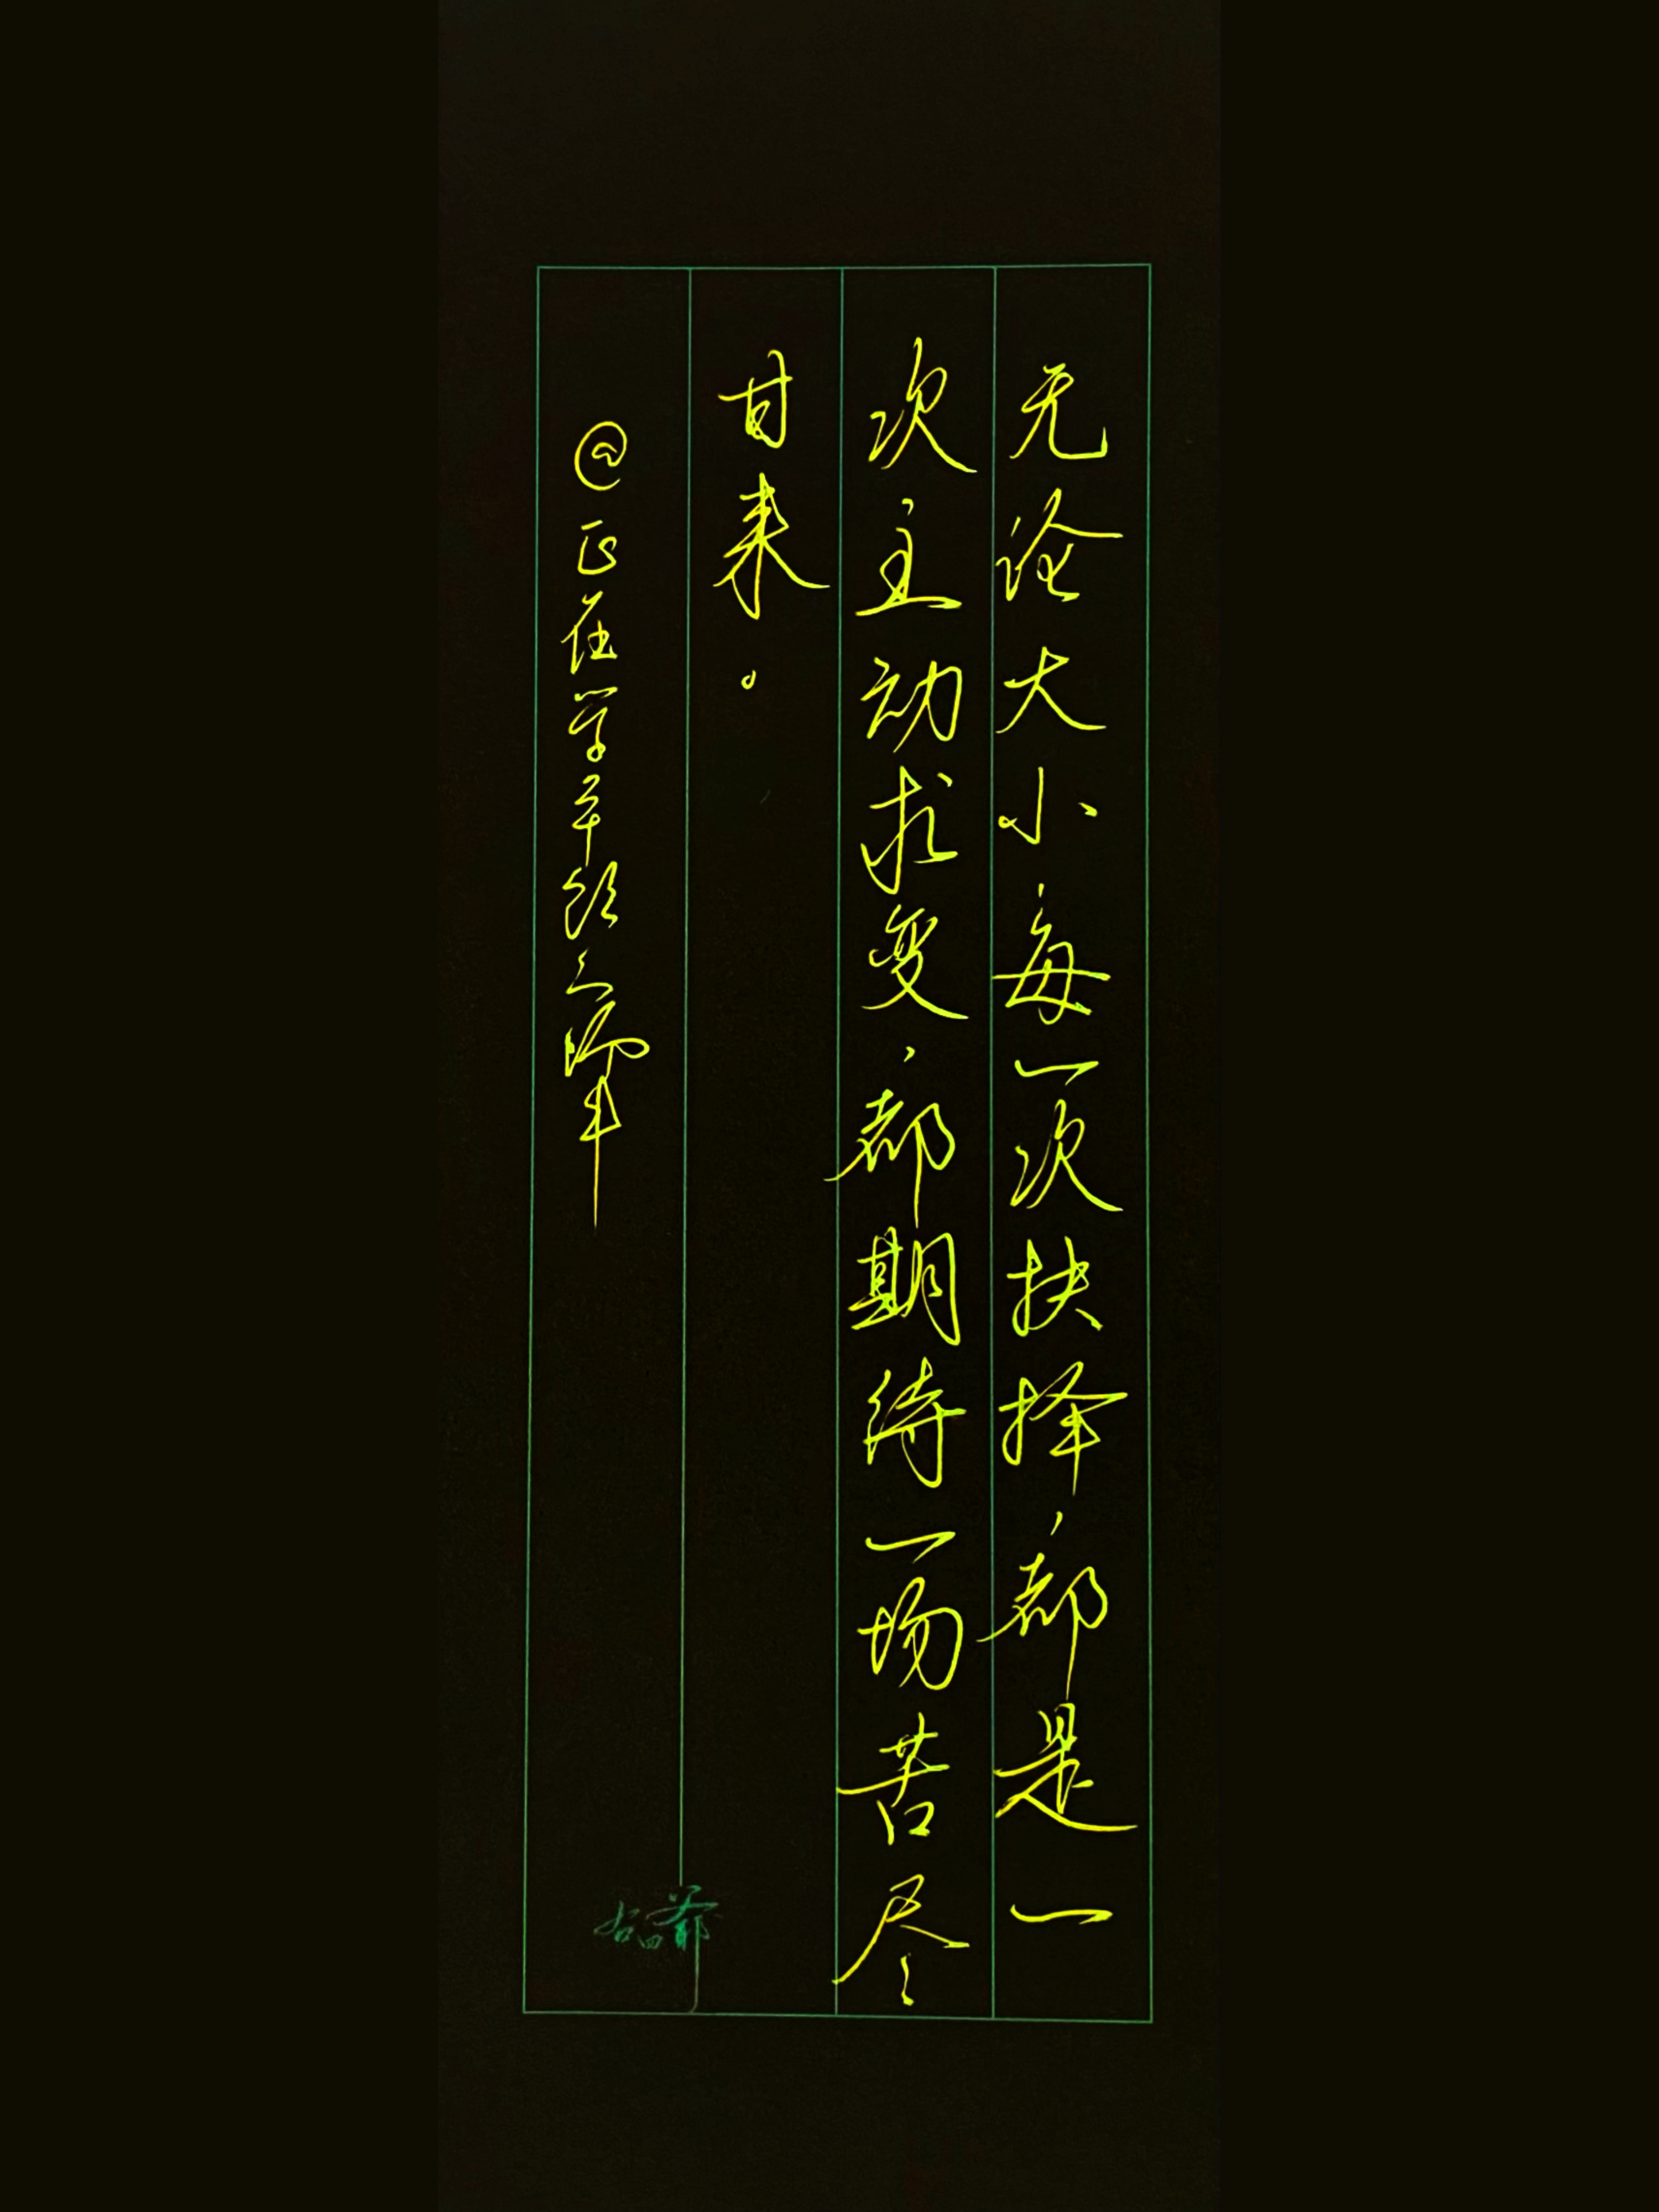 无论大小每一次抉择,都是一
次主动求变,都期待一场苦尽
甘来。
@正在学